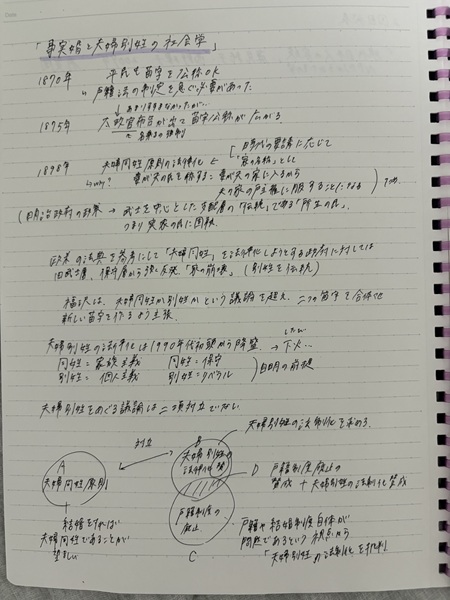 「事実婚と夫婦別姓の社会学」
1870年 平民も苗字を公称OK
戸籍法の制定を急ぐ必要があった
↓あまりすすまなかったが…
1875年 太政官布告が出て苗字公称が広がる
1898年 夫婦同姓原則の法律化 ←
「時代の要請に応じて
「家の名称」として
why? 妻が夫の氏を称する = 妻が夫の家に入るから
夫の家の戸主権に服することになる
(明治政府の対策 → 武士を中心とした支配層の「伝統」である「所生の氏」、
つまり実家の氏に固執
欧米の法典を参考にして「夫婦同姓」を法律化しようとする政府に対しては
旧武士層、保守層から強い反発「家の崩壊」(別姓を伝統)
福沢は、夫婦同姓か別姓かという議論を超え、二つの苗字を合体させ
新しい苗字を作るよう主張、
夫婦別姓の法律化は1990年代初頭から隆盛 → 下火…
同姓=家族主義 同姓=保守
別姓=個人主義 別姓=リベラル
)自明の前提
夫婦別姓をめぐる議論は二項対立でない
夫婦別姓の法制化を求める
対立
A
夫婦同姓原則
B
夫婦別姓の
法制化 賛
D 戸籍制度廃止の
賛成 + 夫婦別姓の法制化賛成
戸籍制度の
廃止
C
結婚をすれば
夫婦同姓であることが
望ましい
戸籍や結婚制度自体が
問題であるという視点から
「夫婦別姓の法制化」を批判